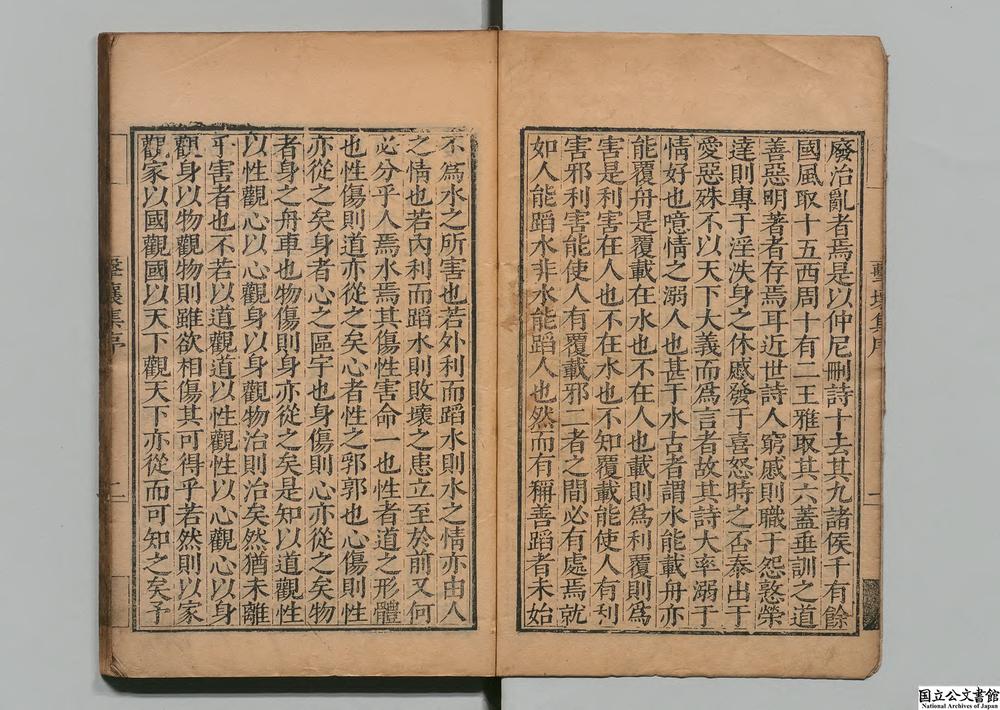 廢治亂者焉是以仲尼刪詩十去其九諸侯千有餘
國風取十五西周十有二王雅取其六蓋垂訓之道
善惡明著者存焉耳近世詩人窮慼則職于怨憝榮
達則專于淫泆身之休慼發于喜怒時之否泰出于
愛惡殊不以天下大義而爲言者故其詩大率溺于
情好也噫情之溺人也甚于水古者謂水能載舟亦
能覆舟是覆載在水也不在人也載則爲利覆則爲
害是利害在人也不在水也不知覆載能使人有利
害邪利害能使人有覆載邪二者之間必有處焉就
如人能蹈水非水能蹈人也然而有稱善蹈者未始
不爲水之所害也若外利而蹈水則水之情亦由人
之情也若內利而蹈水則敗壞之患立至於前又何
必分乎人焉水焉其傷性害命一也性者道之形體
也性傷則道亦從之矣心者性之郛郭也心傷則性
亦從之矣身者心之區宇也身傷則心亦從之矣物
者身之舟車也物傷則身亦從之矣是知以道觀性
以性觀心以心觀身以身觀物治則治矣然猶未離
乎害者也不若以道觀道以性觀性以心觀心以身
觀身以物觀物則雖欲相傷其可得乎若然則以家
觀家以國觀國以天下觀天下亦從而可知之矣予
擊壤集序
二
国立公文書館
National Archives of Japan